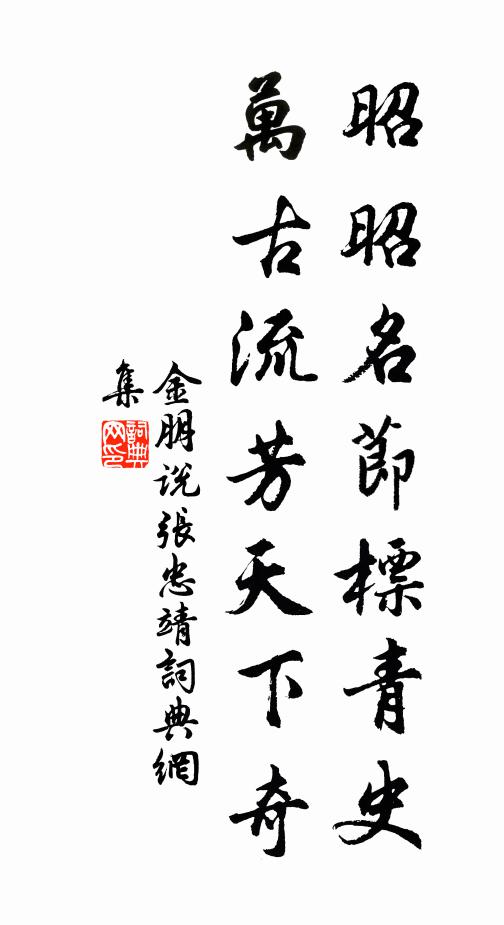 昭昭名節標青史
萬古流芳天下奇
金朋说張忠靖詞典網
集
詞典
网印